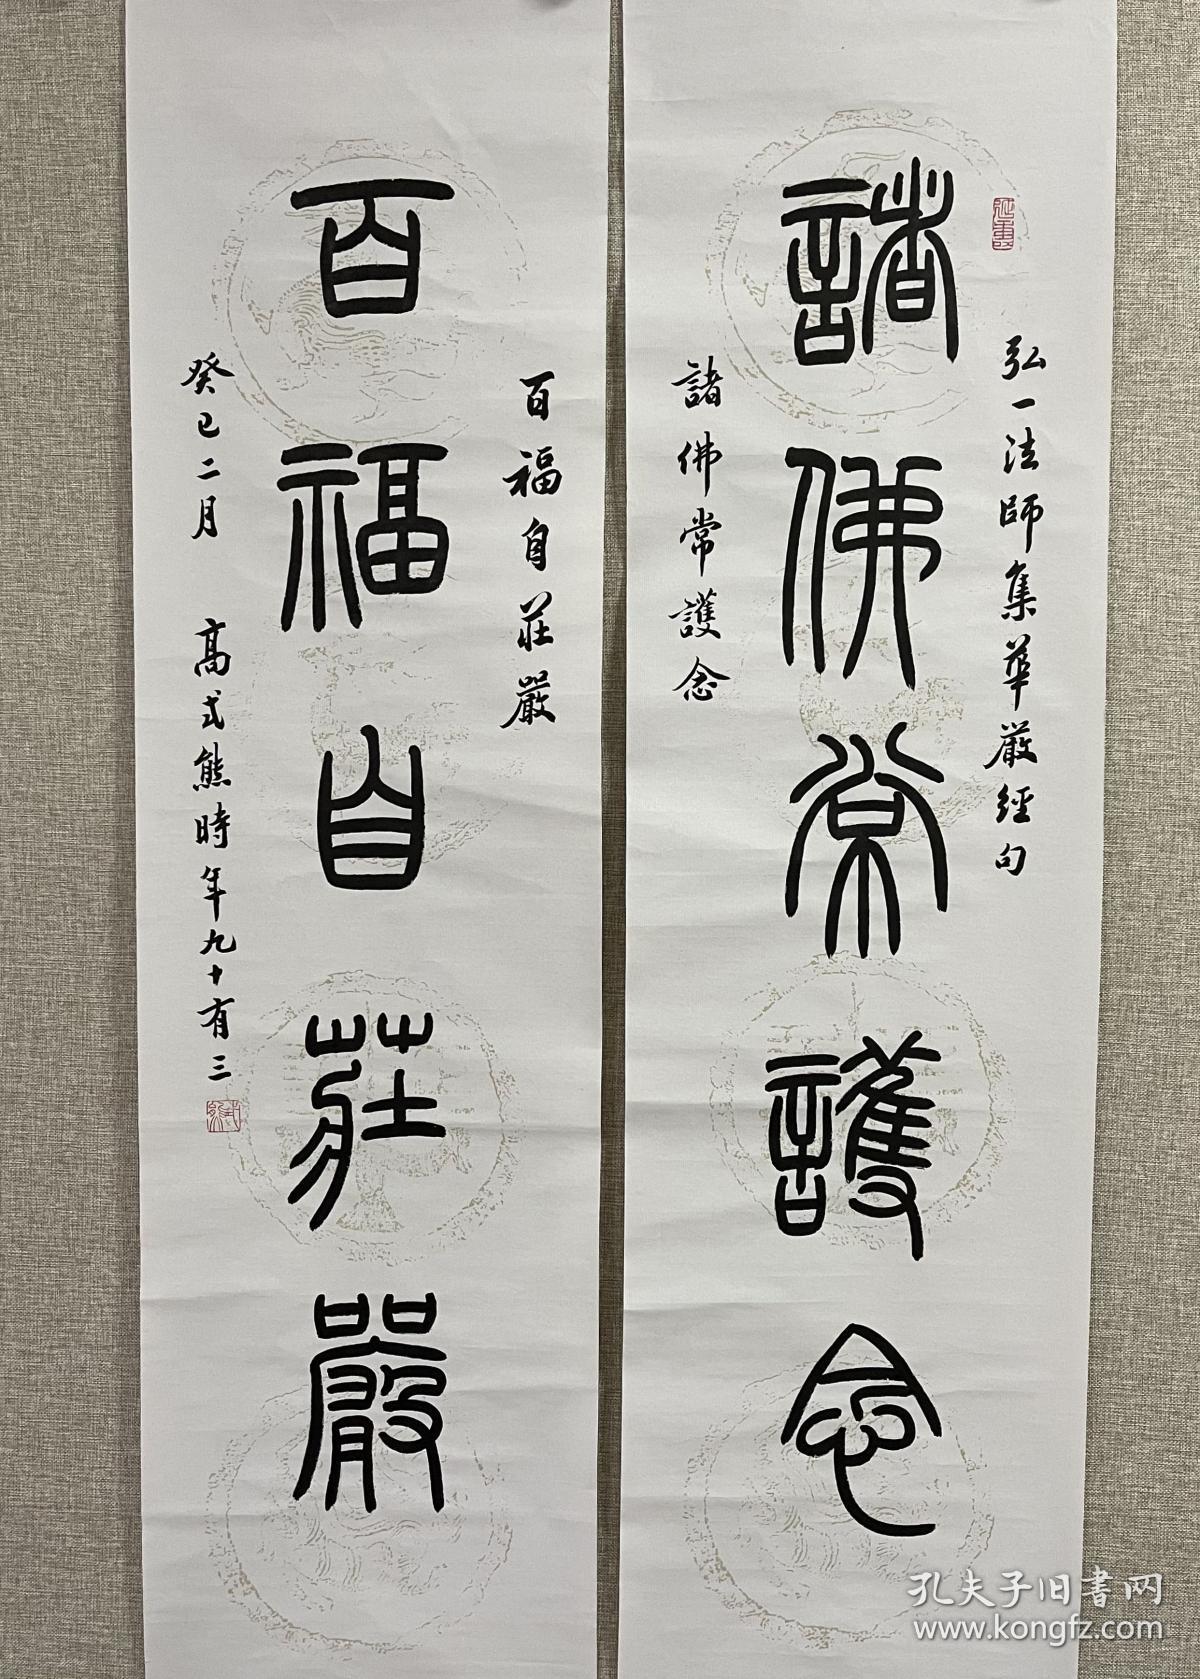 弘一法師集華嚴經句
諸佛常護念
諸佛常護念
百福自莊嚴
百福自莊嚴
癸巳二月 高式熊時年九十有三
孔夫子旧書网
www.kongfz.com